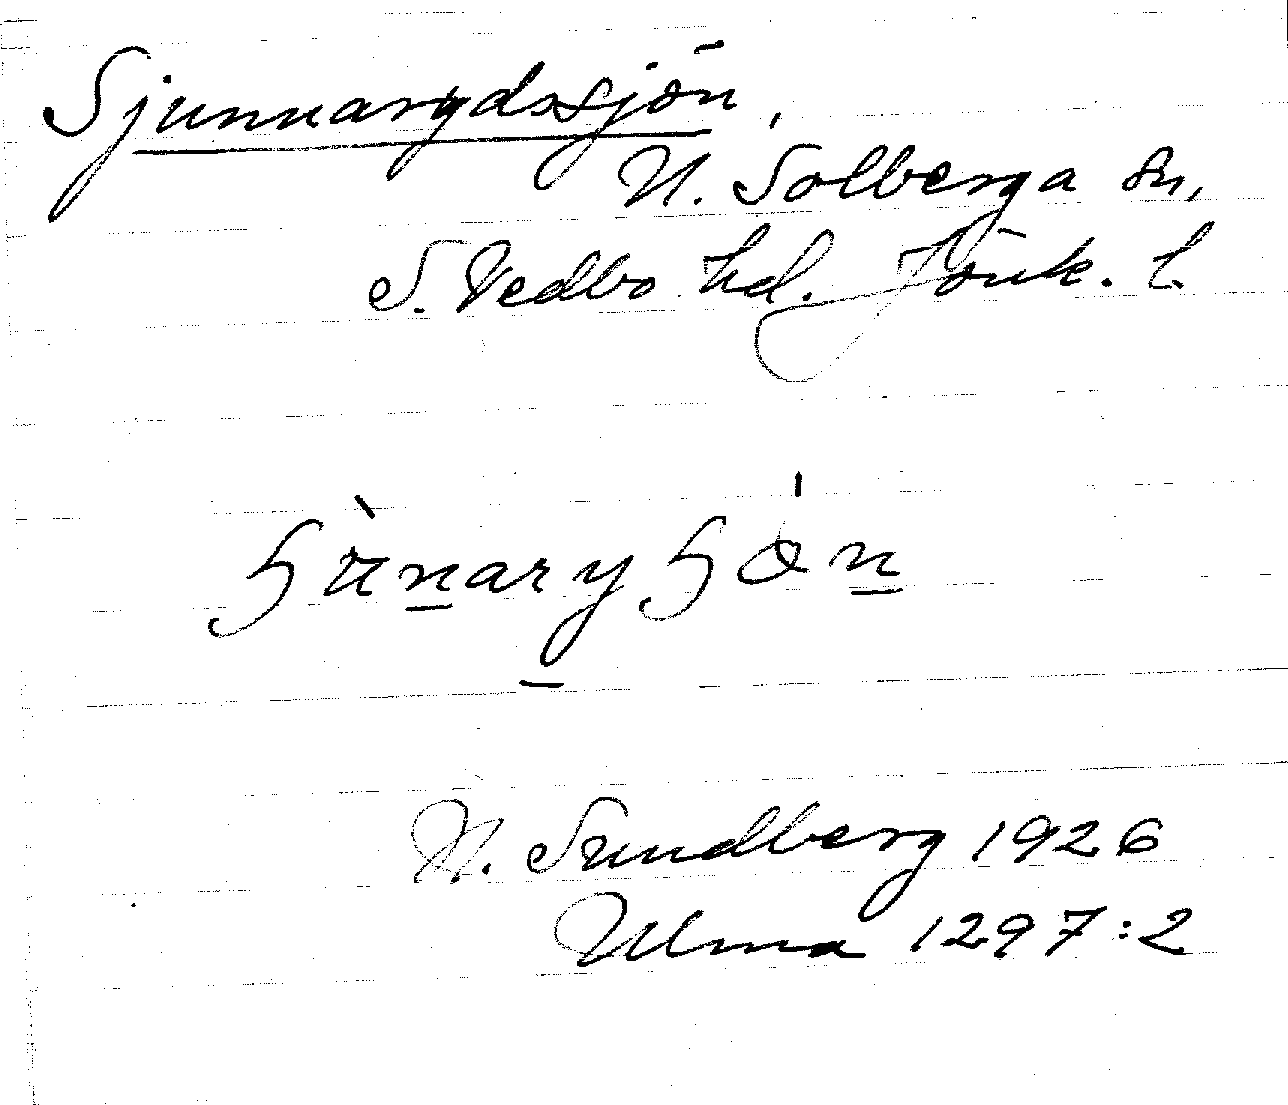 Sjunnarydssjön,
N. Solberga sn,
S. Vedbo hd. Jönk. l.
N. Sundberg 1926
Ulma 1297:2